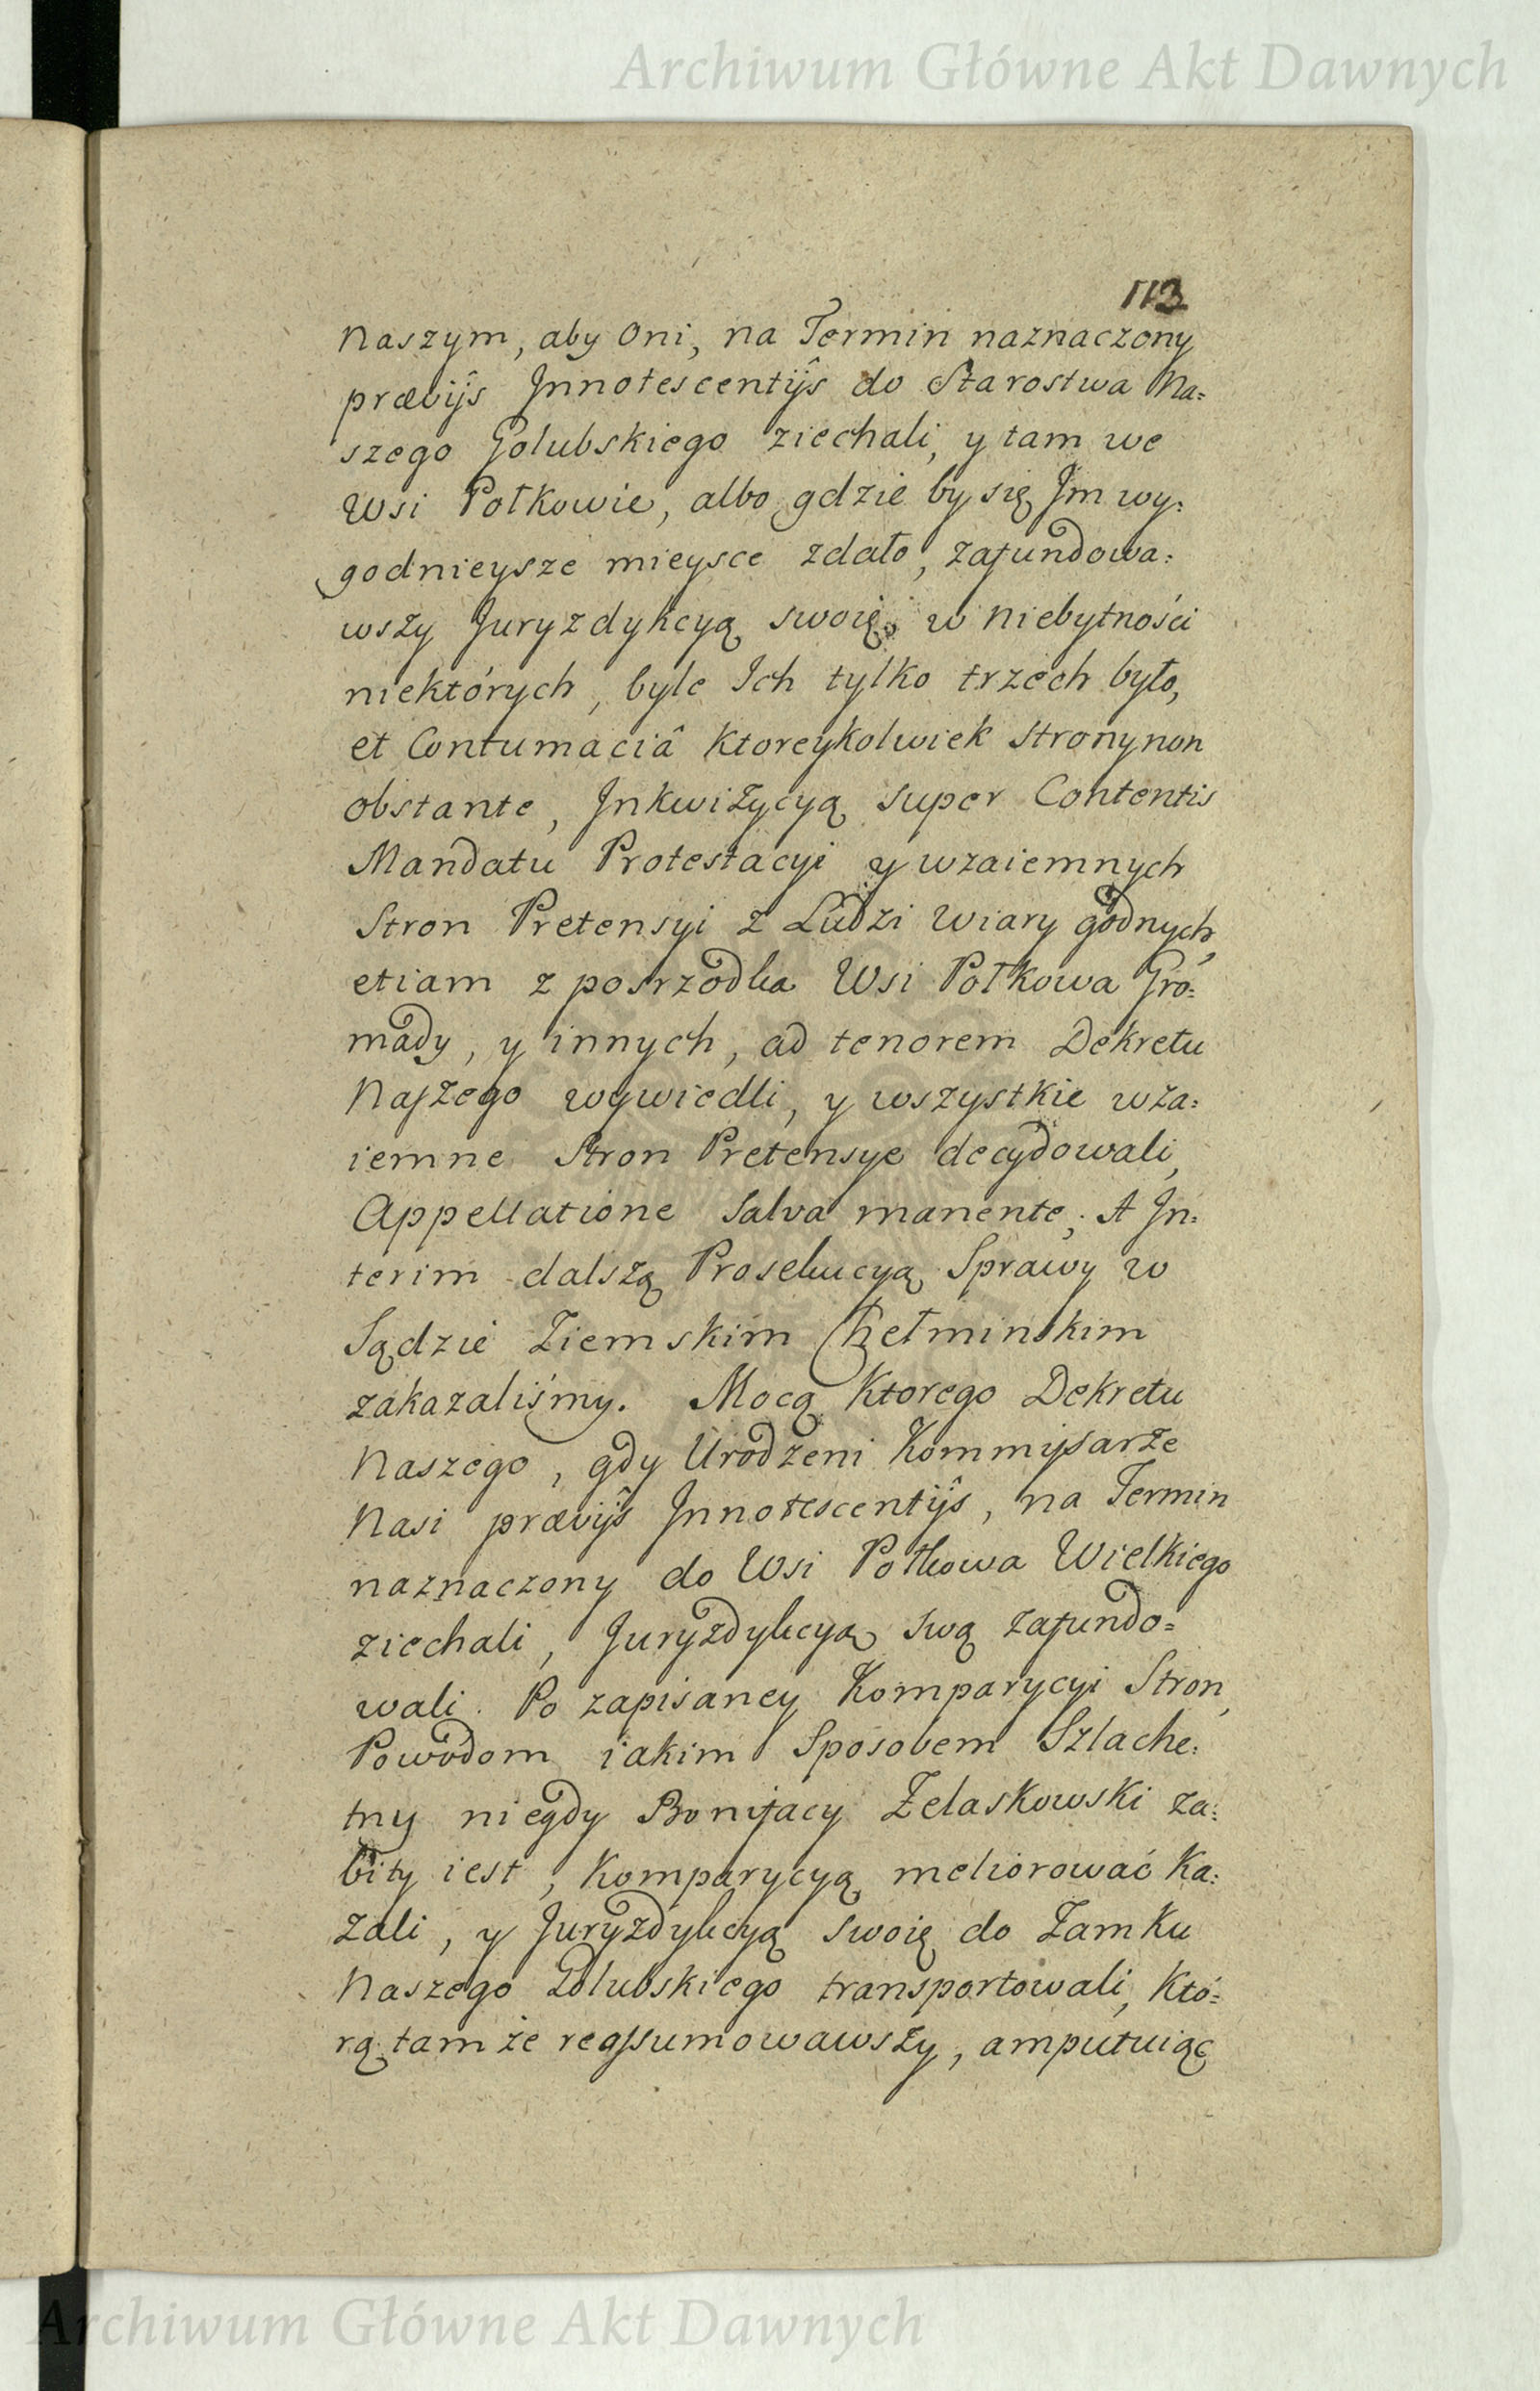 Archiwum Główne Akt Dawnych
113
Naszym, aby Oni, na Termin naznaczony
prævijs Jnnotescentijs do Starostwa Na=
szego Golubskiego ziechali, y tam we
Wsi Połkowie, albo gdzie by się Jm wy=
godnieysze mieysce zdało, zafundowa=
wszy Juryzdykcyą swoię, w niebytności
niektórych, byle Ich tylko trzech było,
et Contumaciâ Ktoreykolwiek strony non
obstante, Jnkwizycyą super Contentis
Mandatu Protestacyi y wzaiemnych
Stron Pretensyi z Ludzi Wiary godnych,
etiam z posrzodka Wsi Połkowa Gro=
mady, y innych, ad tenorem Dekretu
Naszego wywiedli, y wszystkie wza=
iemne Stron Pretensye decydowali,
Appellatione salva manente; A Jn=
terim dalszą Prosekucyą Sprawy w
Sądzie Ziemskim Chełminskim
zakazaliśmy. Mocą Ktorego Dekretu
Naszego, gdy Urodzeni Kommissarze
Nasi prævijs Jnnotescentijs, na Termin
naznaczony do Wsi Połkowa Wielkiego
ziechali, Juryzdykcyą swą zafundo=
wali. Po zapisaney Komparycyi Stron,
Powodom iakim Sposobem Szlache=
tny niegdy Bonifacy Zelaskowski za=
bity iest, Komparycyą meliorować Ka=
zali, y Juryzdykcyą swoię do Zamku
Naszego Golubskiego transportowali, Któ=
rą tam że reassumowawszy, amputuiąc
Archiwum Główne Akt Dawnych